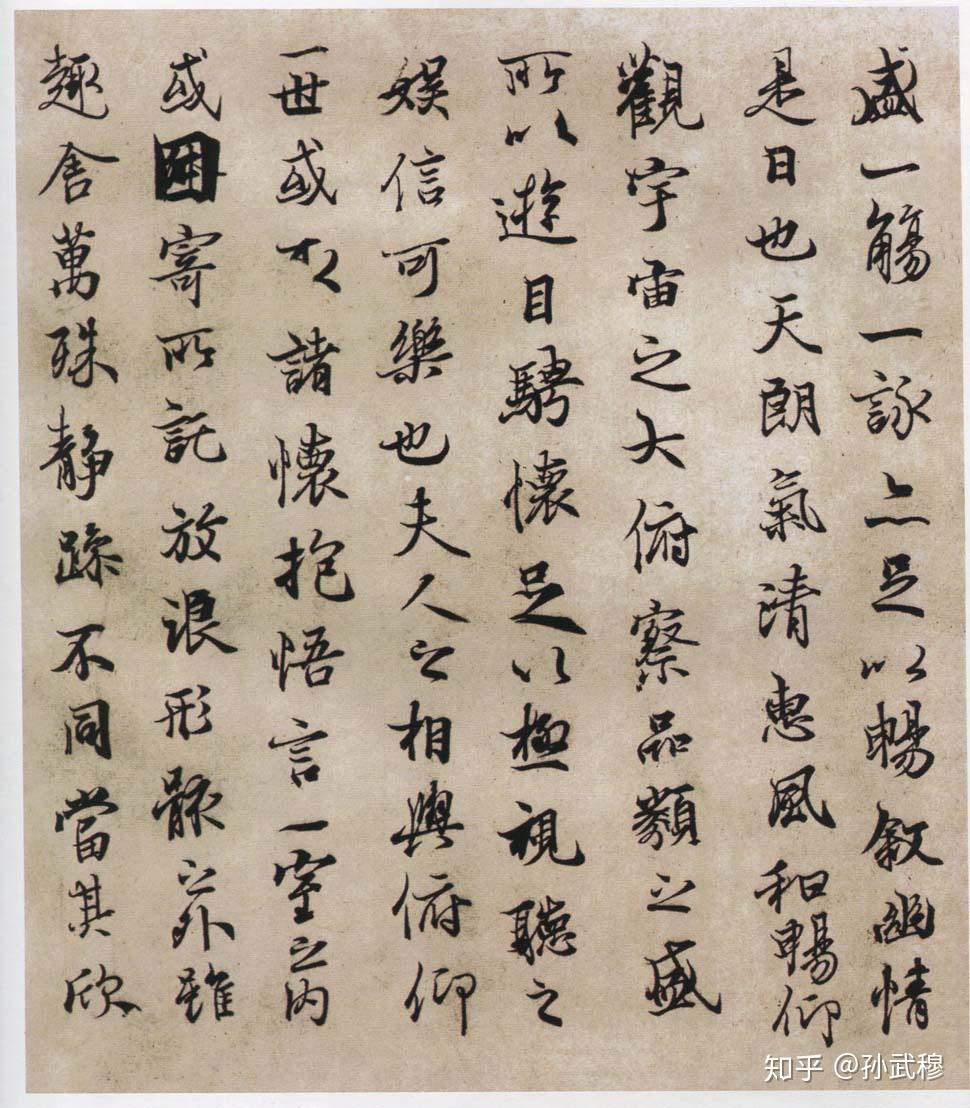 盛一觴一詠亦足以暢敘幽情
是日也天朗氣清惠風和暢仰
觀宇宙之大俯察品類之盛
所以遊目騁懷足以極視聽之
娛信可樂也夫人之相與俯仰
一世或取諸懷抱悟言一室之內
或因寄所託放浪形骸之外雖
趣舍萬殊靜躁不同當其欣
知乎 @孙武穆